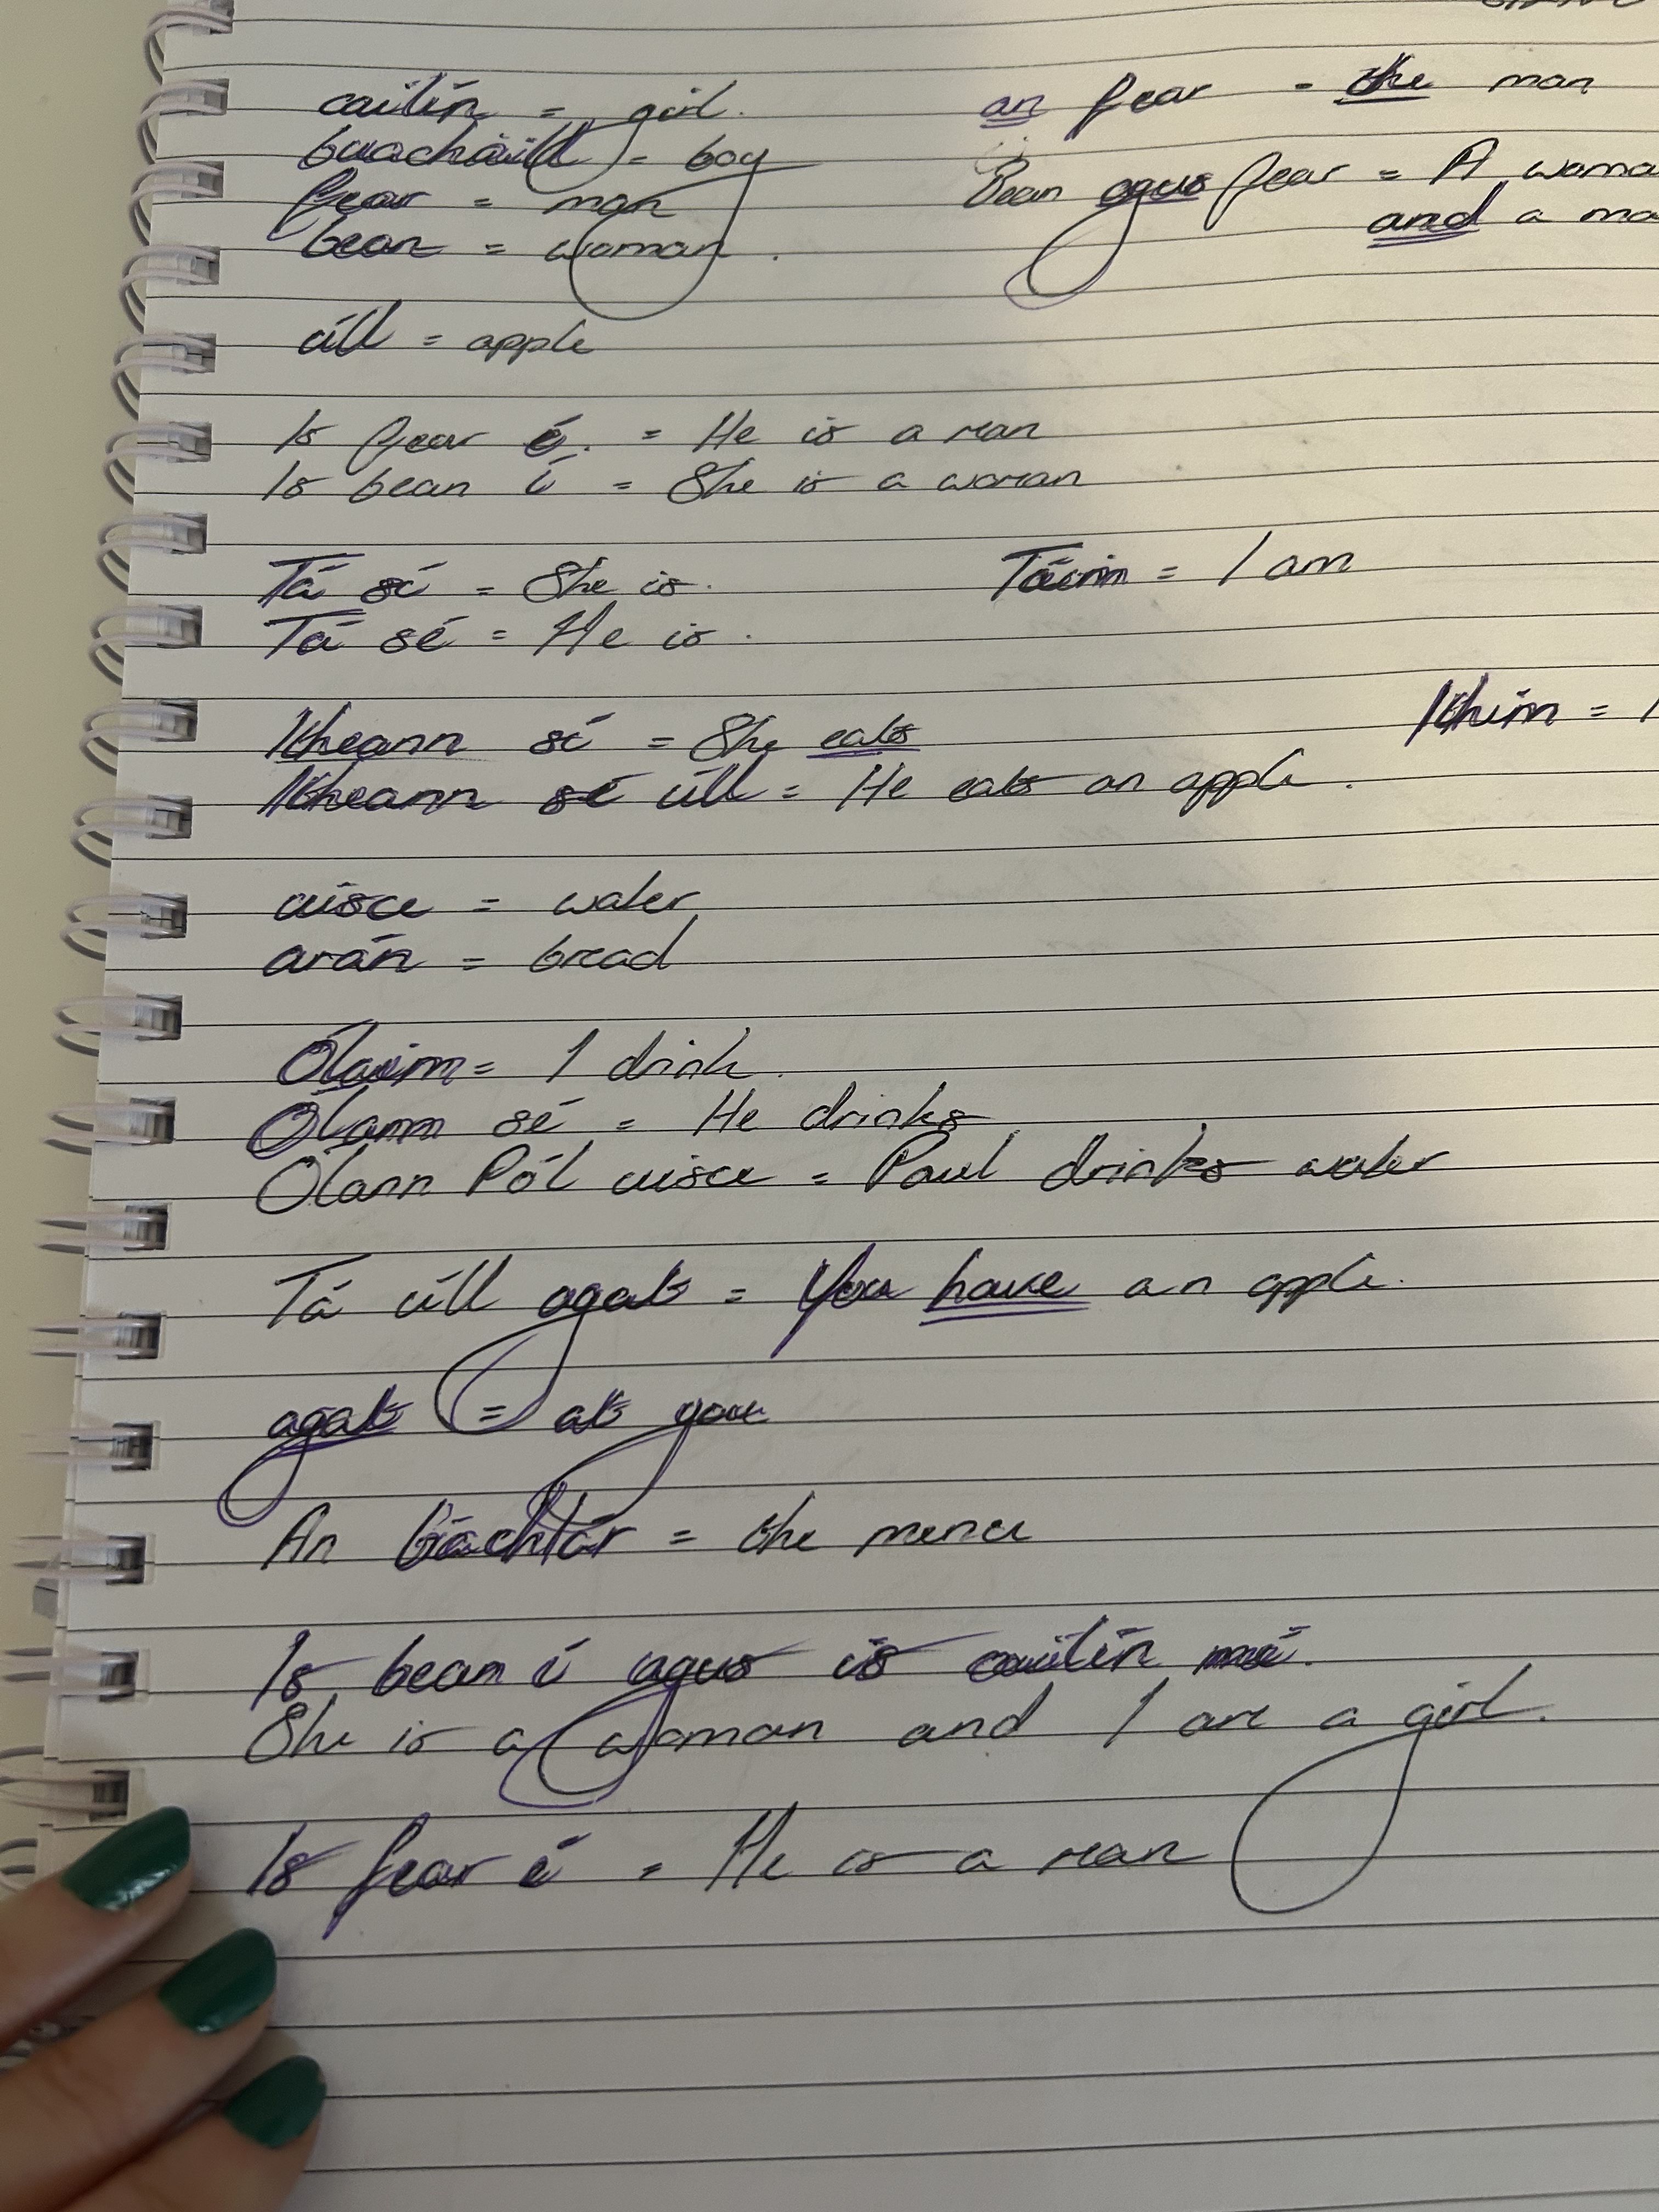 cailín = girl.
an fear - the man
buachaill = boy
Bean agus fear = A woma
and a ma
fear = man
bean = woman.
úll = apple
Is fear é. = He is a man
Is bean í = She is a woman
Tá sí = She is.
Táim = I am
Tá sé = He is.
Itheann sí = She eats
Ithim = I
Itheann sé úll = He eats an apple.
uisce = water
arán = bread
Ólaim = I drink.
Ólann sé = He drinks
Ólann Pól uisce = Paul drinks water
Tá úll agat = You have an apple.
agat = at you
An biachlár = the menu
Is bean í agus is cailín mé.
She is a woman and I am a girl.
Is fear é = He is a man